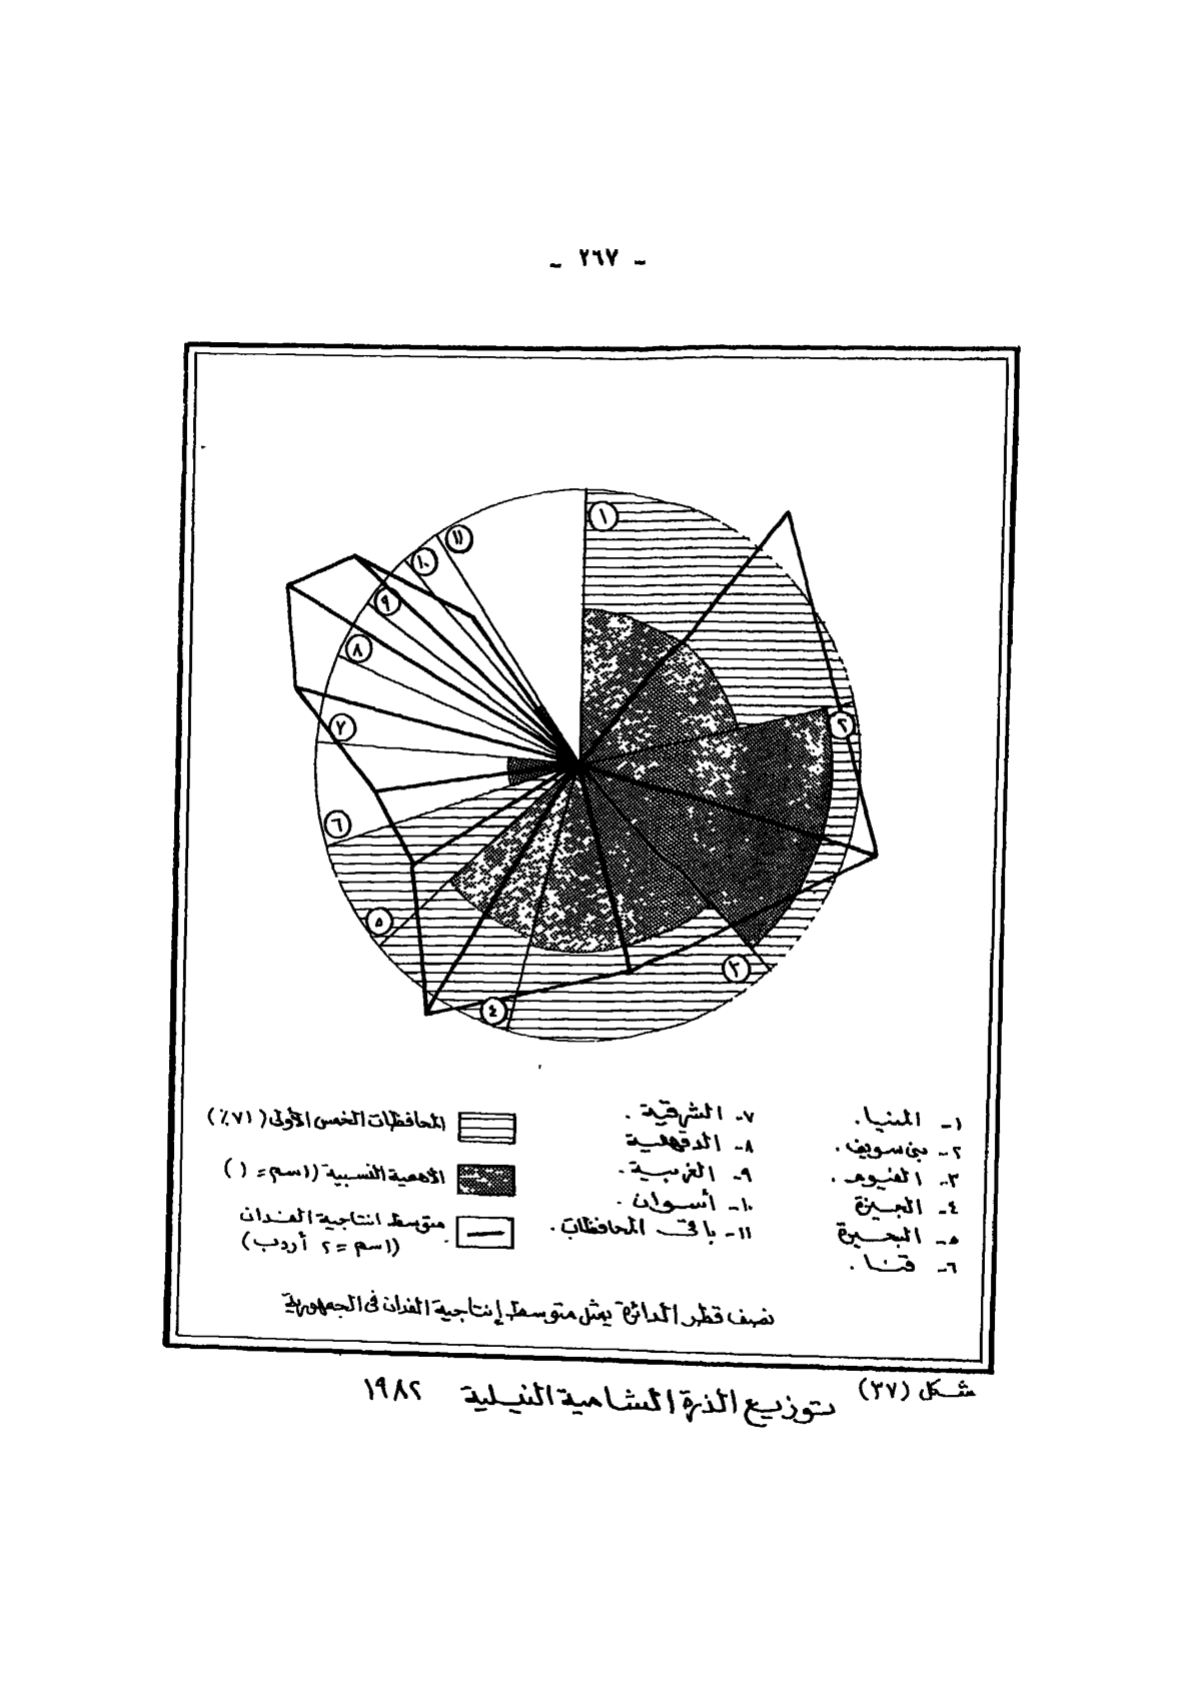 - ٢٦٧ -
١
٢
٣
٤
٥
٦
٧
٨
٩
١٠
١١
١- المنيا.
٢- بنى سويف.
٣- الفيوم.
٤- الجيزة
٥- البحيرة
٦- قنا.
٧- الشرقية.
٨- الدقهلية
٩- الغربية.
١٠- أسوان.
١١- باقى المحافظات.
المحافظات الخمس الأولى (٧١٪)
الأهمية النسبية (١سم = ١)
متوسط انتاجية الفدان
(١سم = ٢ أردب)
نصف قطر الدائرة يمثل متوسط إنتاجية الفدان فى الجمهورية
شكل (٣٧) توزيع الذرة الشامية النيلية ١٩٨٢